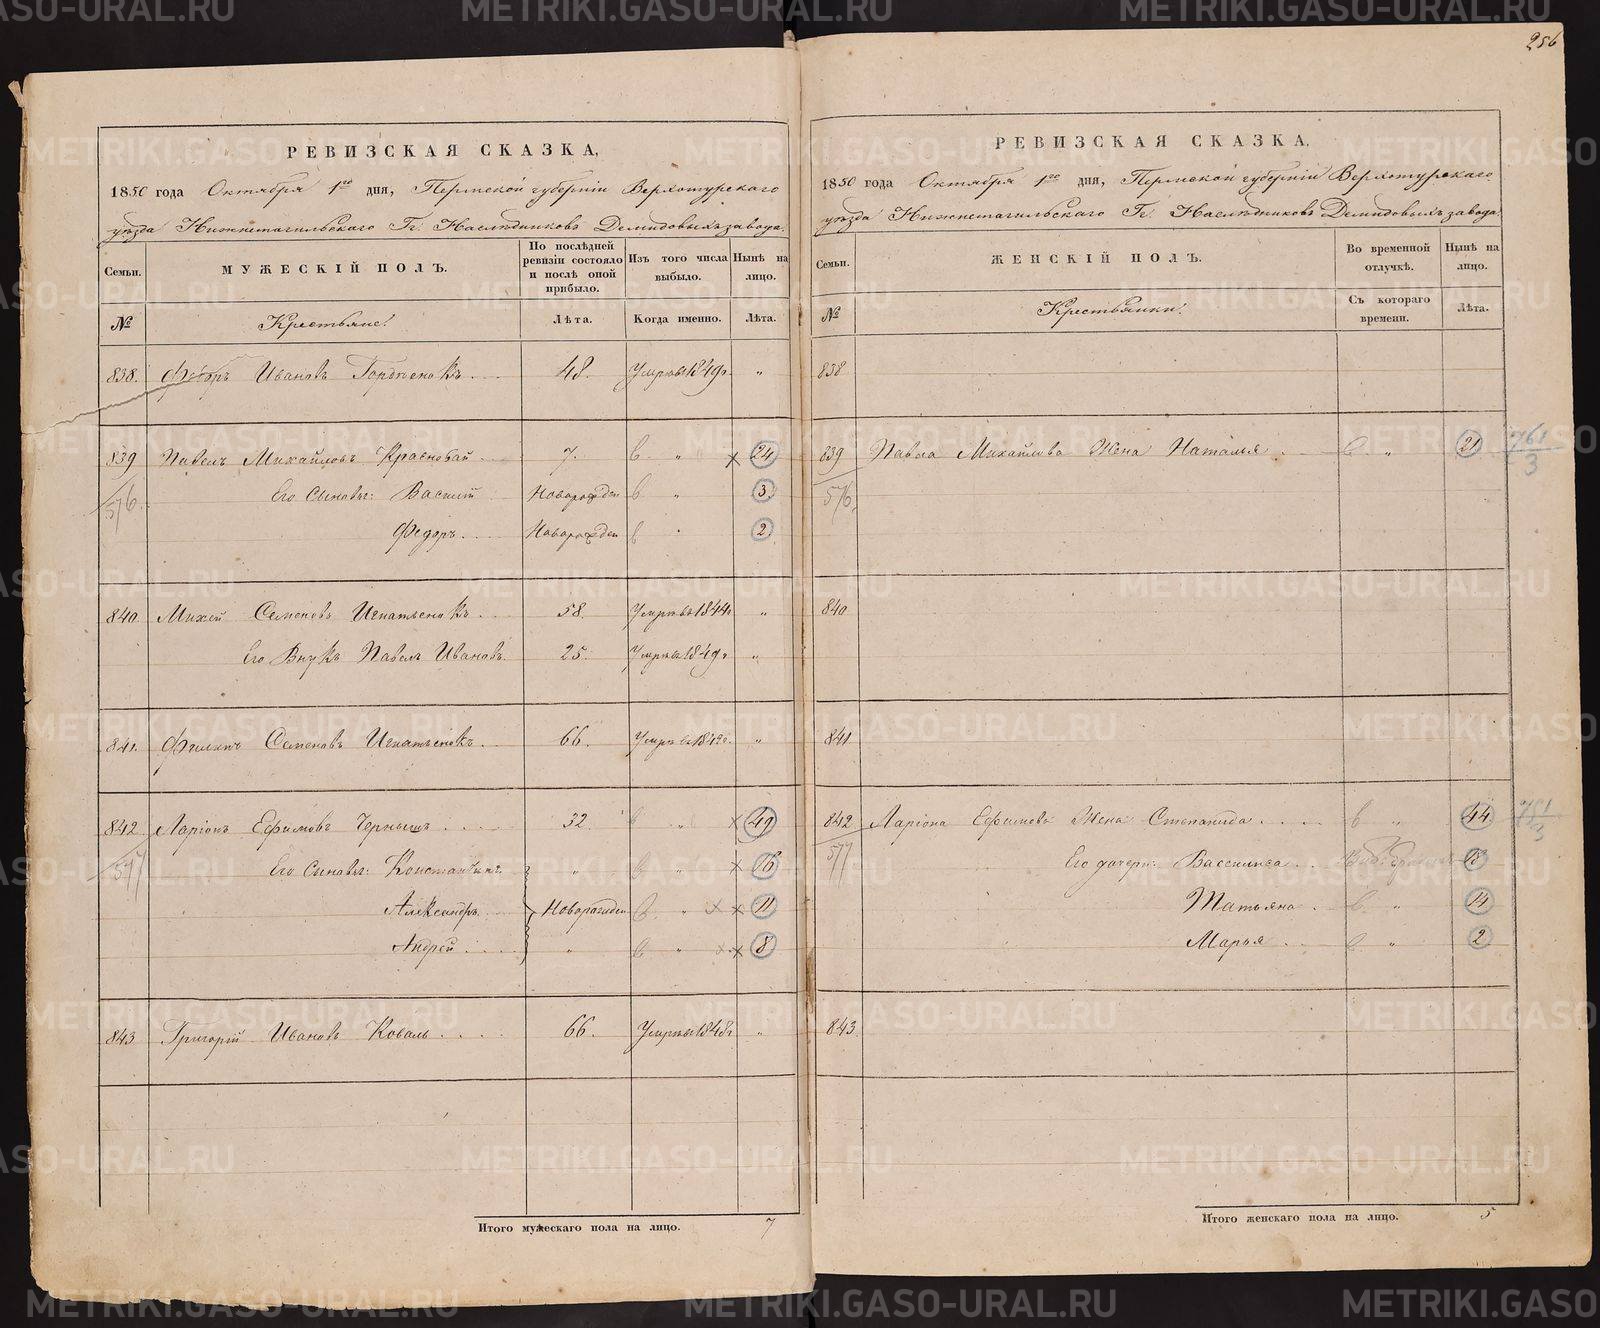 256
РЕВИЗСКАЯ СКАЗКА,
1850 года Октября 1го дня, Пермской губерніи Верхотурскаго
уѣзда Нижнетагильскаго Гг. Наслѣдниковъ Демидовыхъ завода.
Семьи.
МУЖЕСКІЙ ПОЛЪ.
По послѣдней ревизіи состояло и послѣ оной прибыло.
Изъ того числа выбыло.
Нынѣ на лицо.
№
Крестьяне:
Лѣта.
Когда именно.
Лѣта.
838. Федоръ Ивановъ 48. Умре въ 1849г. "
839 Павелъ Михайловъ Краснобай 7. в " × 24
576 Его Сыновья: Василій Новорожден в " 3
Федоръ Новорожден в " 2
840. Михей Семеновъ Игнатьенокъ 58. Умре въ 1844г "
Его Внукъ Павелъ Ивановъ. 25. Умре въ 1849г "
841. Филипъ Семеновъ Игнатьенокъ. 66. Умре въ "
842. Ларіонъ Ефимовъ Чернышъ 32. в " × 49
577 Его Сыновья: Константинъ " в " × 16
Александръ Новорожден в " × × 11
Андрей " в " × × 8
843. Григорій Ивановъ Коваль 66. Умре въ 1848г "
Итого мужескаго пола на лицо. 7
РЕВИЗСКАЯ СКАЗКА,
1850 года Октября 1го дня, Пермской губерніи Верхотурскаго
уѣзда Нижнетагильскаго Гг. Наслѣдниковъ Демидовыхъ завода.
Семьи.
ЖЕНСКІЙ ПОЛЪ.
Во временной отлучкѣ.
Нынѣ на лицо.
№
Крестьянки:
Съ котораго времени.
Лѣта.
838
839 Павла Михайлова Жена Наталья в " 21 761
576 3
840
841
842 Ларіона Ефимова Жена Степанида в " 44
577 Его дочери: Вассилиса 18
Татьяна в " 14
Марья в " 2
843.
Итого женскаго пола на лицо. 5
METRIKI.GASO-URAL.RU